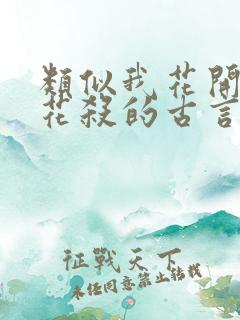 類似我花開
花殺的古言
征戰天下
未經同意禁止轉載